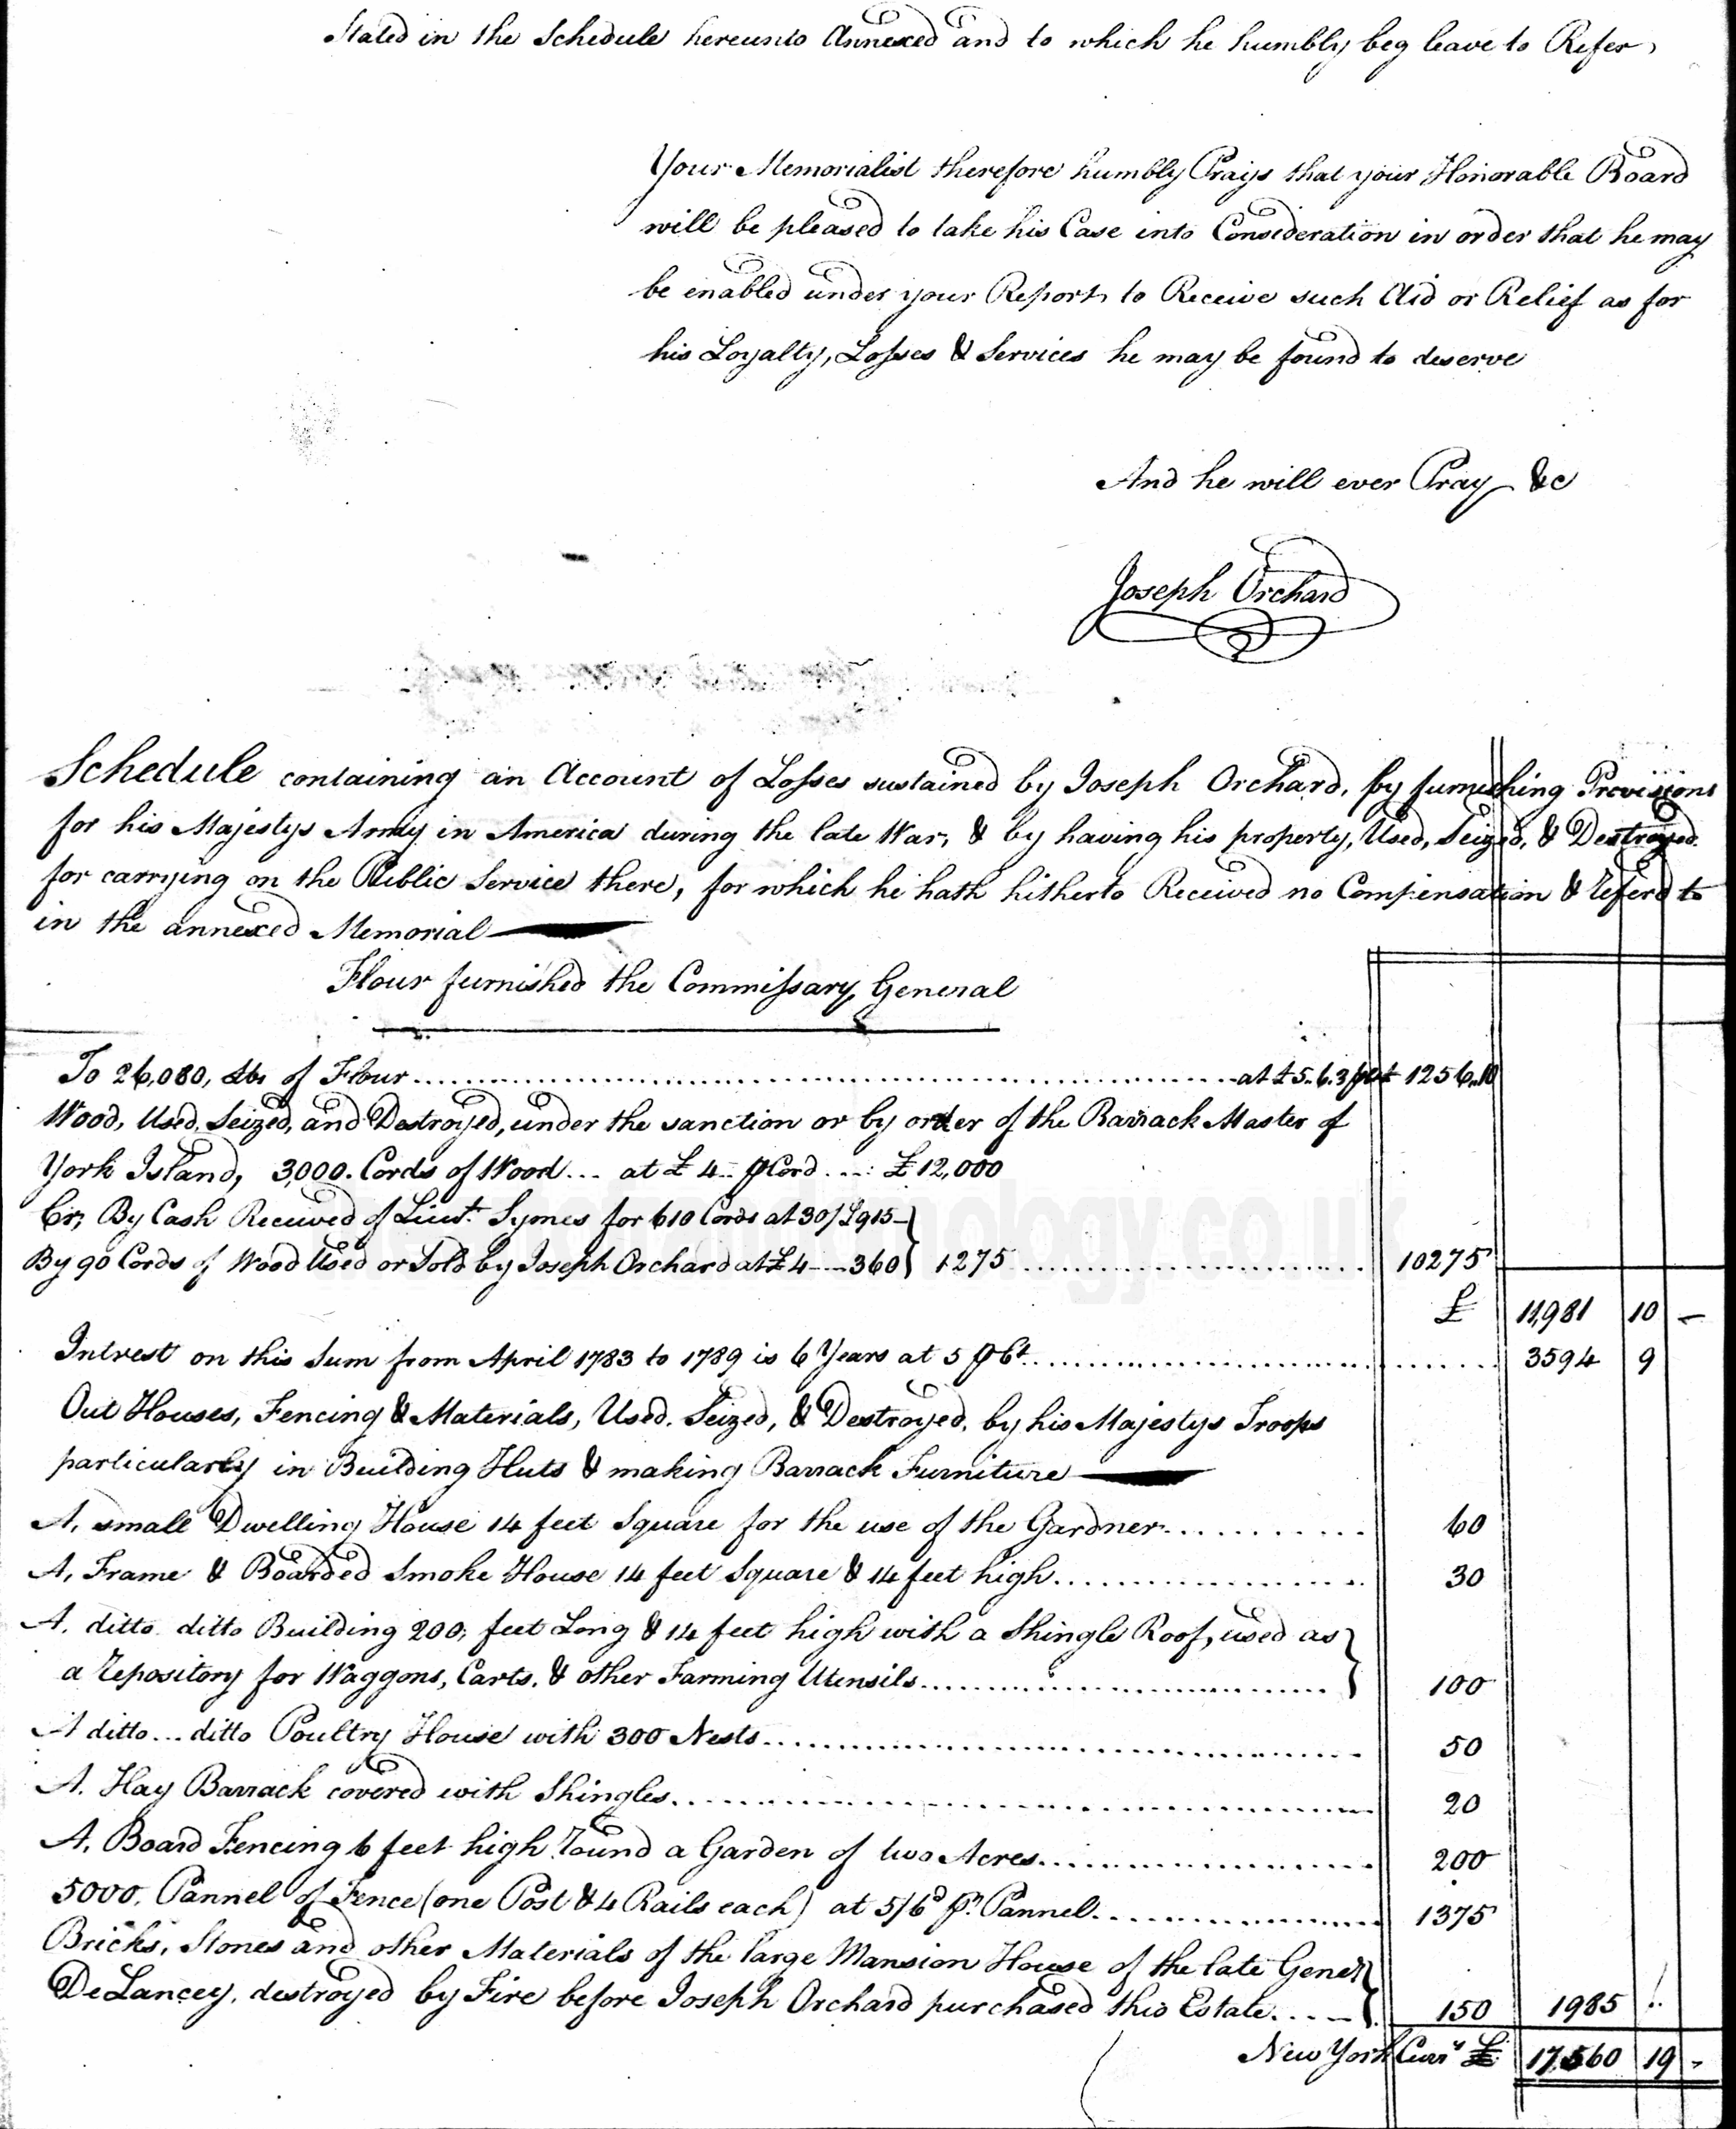 Stated in the Schedule hereunto Annexed and to which he humbly beg leave to Refer,
Your Memorialist therefore humbly Prays that your Honorable Board
will be pleased to take his Case into Consideration in order that he may
be enabled under your Report to Receive such Aid or Relief as for
his Loyalty, Losses & Services he may be found to deserve
And he will ever Pray &c
Joseph Orchard
Schedule containing an Account of Losses sustained by Joseph Orchard, by furnishing Provisions
for his Majestys Army in America during the late War, & by having his property, Used, Seized, & Destroyed
for carrying on the Public Service there, for which he hath hitherto Received no Compensation & referd to
in the annexed Memorial
Flour furnished the Commissary General
To 26,080, lbs of Flour at £5.6.3 1256.10
Wood, Used, Seized, and Destroyed, under the sanction or by order of the Barrack Master of
York Island, 3,000. Cords of Wood... at £4.. p Cord .... £12,000
Cr, By Cash Received of Lieut. Symes for 610 Cords at 30/ £915
By 90 Cords of Wood Used or Sold by Joseph Orchard at £4 360 } 1275 10275
£ 11,981 10 -
Intrest on this Sum from April 1783 to 1789 is 6 Years at 5 p Ct 3594 9
Out Houses, Fencing & Materials, Used, Seized, & Destroyed, by his Majestys Troops
particularly in Building Huts & making Barrack Furniture
A, small Dwelling House 14 feet Square for the use of the Gardner 60
A, Frame & Boarded Smoke House 14 feet Square & 14 feet high 30
A, ditto ditto Building 200, feet Long & 14 feet high with a Shingle Roof, used as
a repository for Waggons, Carts, & other Farming Utensils 100
A ditto... ditto Poultry House with 300 Nests 50
A, Hay Barrack covered with Shingles 20
A, Board Fencing 6 feet high round a Garden of two Acres 200
5000, Pannel of Fence (one Post & 4 Rails each) at 5/6d pr Pannel 1375
Bricks, Stones and other Materials of the large Mansion House of the late Genel
DeLancey, destroyed by Fire before Joseph Orchard purchased this Estate 150 1985
New York Curry £ 17,560 19 -